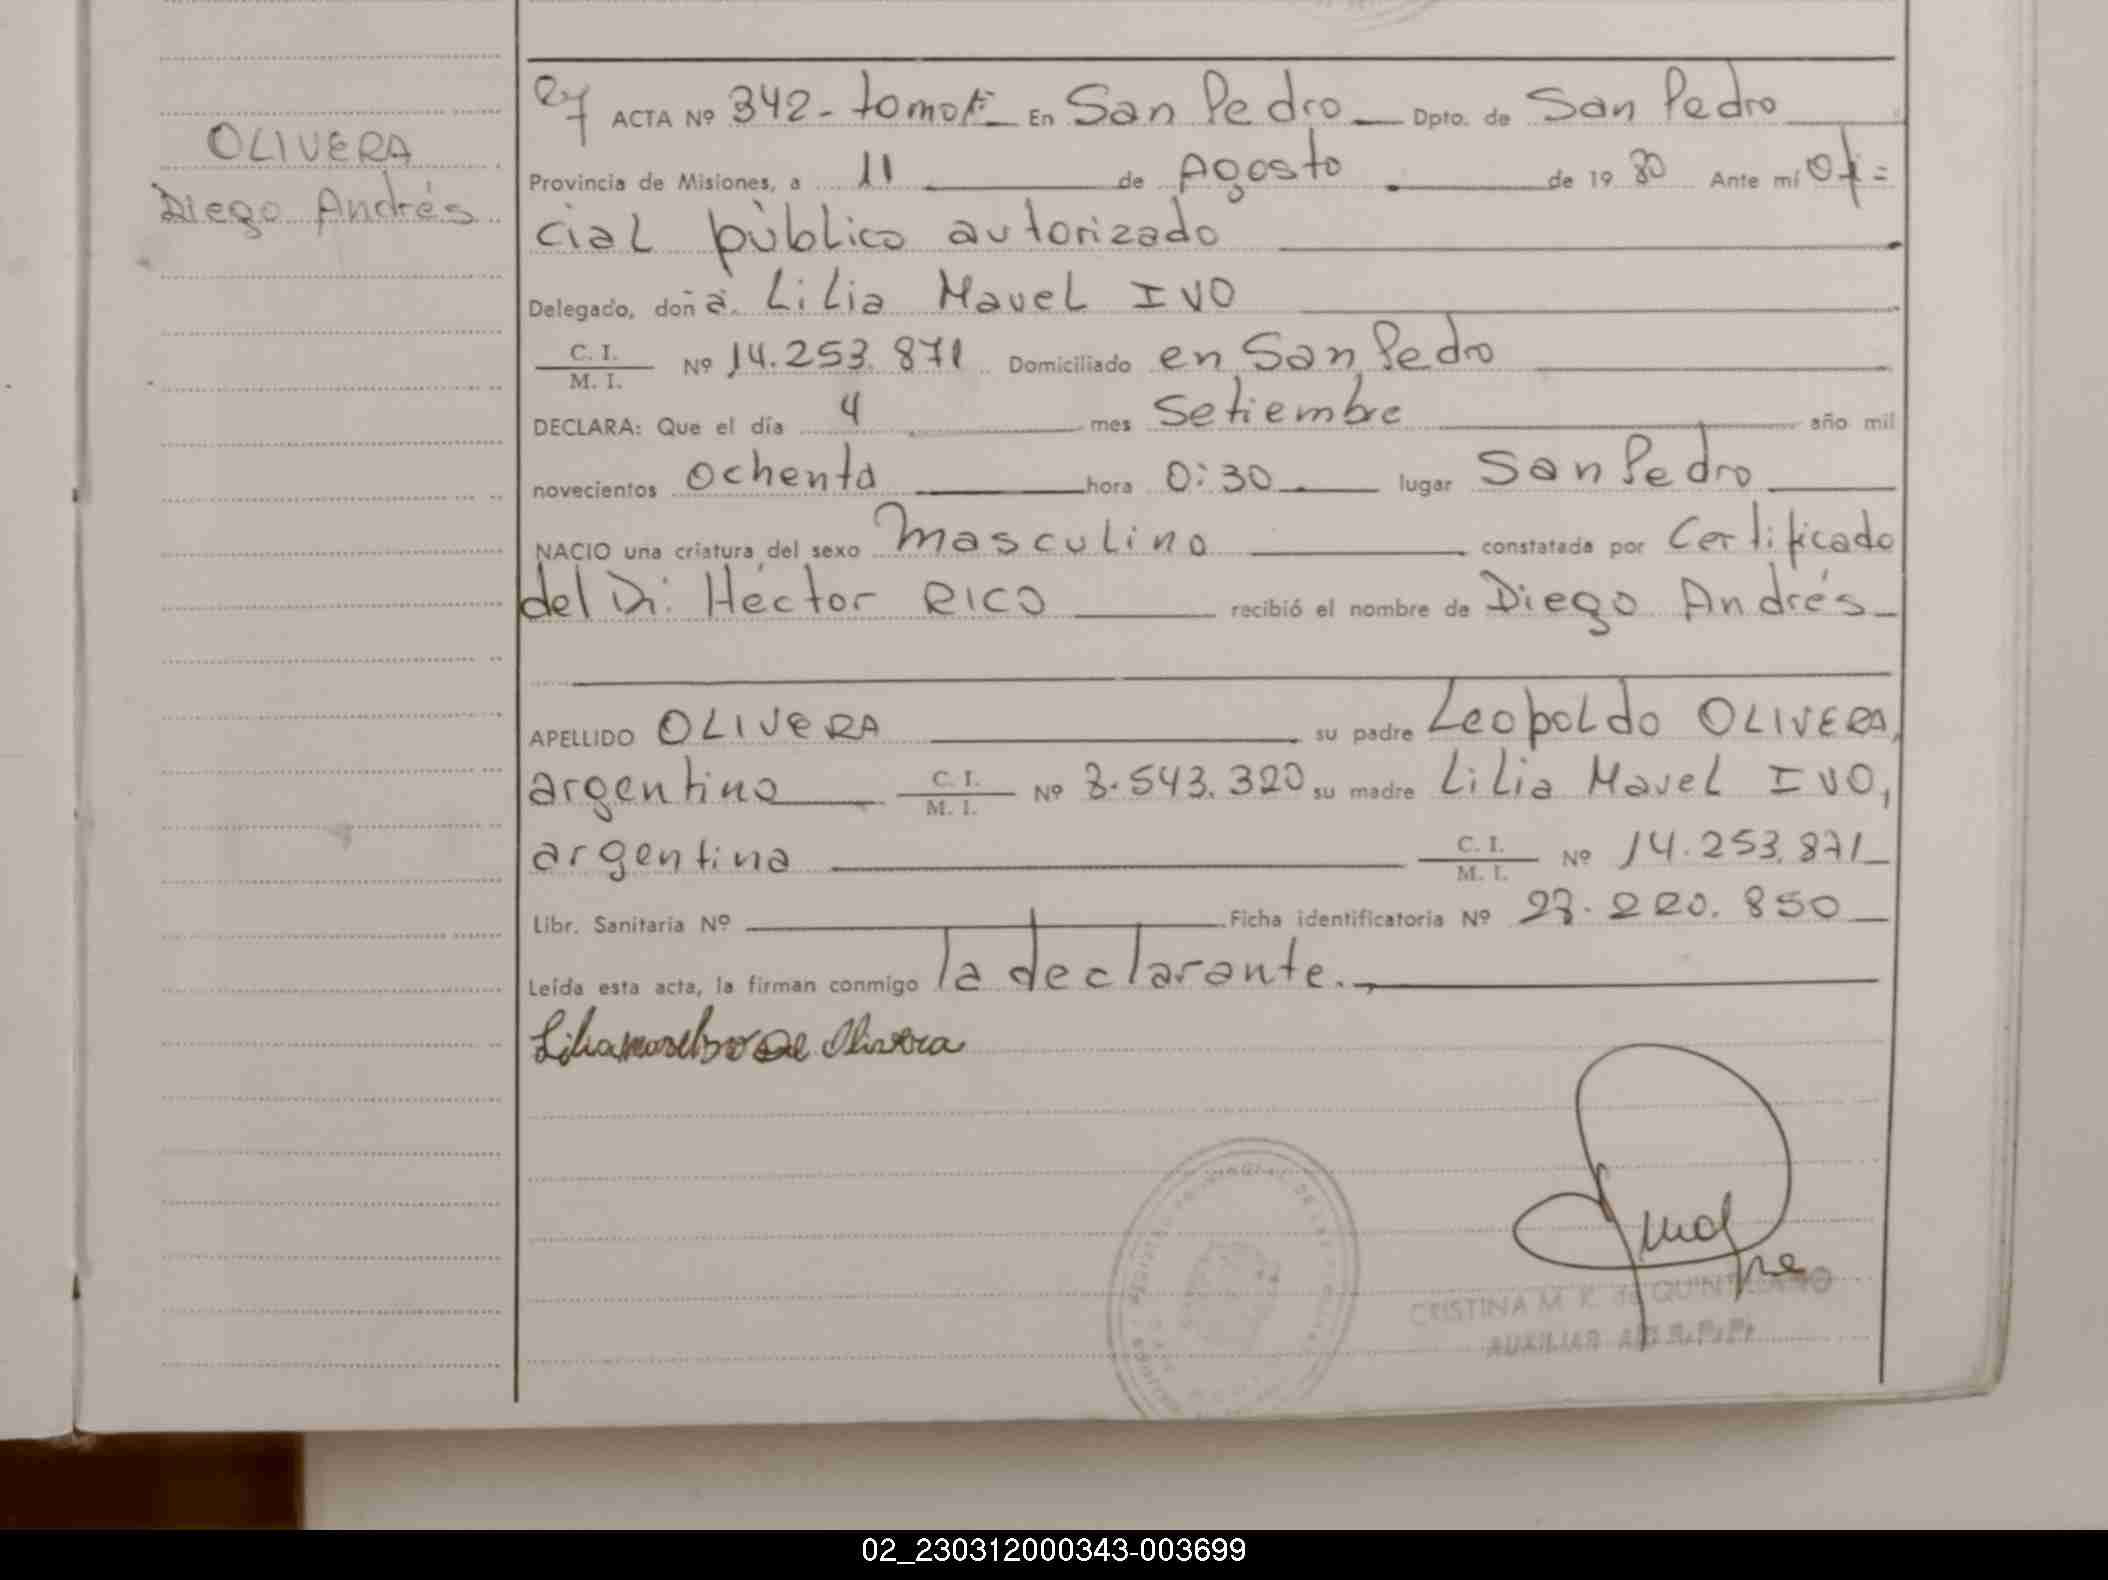 OLIVERA
Diego Andrés
ACTA Nº 342- tomo En San Pedro Dpto. de San Pedro
Provincia de Misiones, a 11 de Agosto de 19 80 Ante mí Ofi=
cial público autorizado
Delegado, doñ a. Lilia Mavel IVO
C. I.
M. I. Nº 14.253.871 Domiciliado en San Pedro
DECLARA: Que el día 4 mes Setiembre año mil
novecientos ochenta hora 0:30 lugar San Pedro
NACIO una criatura del sexo Masculino constatada por Certificado
del Dr. Héctor RICO recibió el nombre de Diego Andrés
APELLIDO OLIVERA su padre Leopoldo OLIVERA,
argentino C. I. M. I. Nº 8.543.320 su madre Lilia Mavel IVO,
argentina C. I. M. I. Nº 14.253.871
Libr. Sanitaria Nº Ficha identificatoria Nº 28.220.850
Leída esta acta, la firman conmigo la declarante.
CRISTINA M. R. de QUINTELIANO
AUXILIAR
02_230312000343-003699